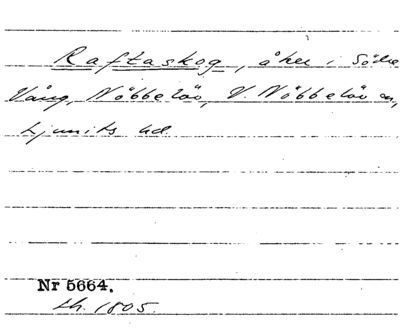 Raftaskog, åker i Södra
Vång, Nöbbelöv, V. Nöbbelöv sn,
Ljunits hd
Nr 5664.
Lh. 1805.